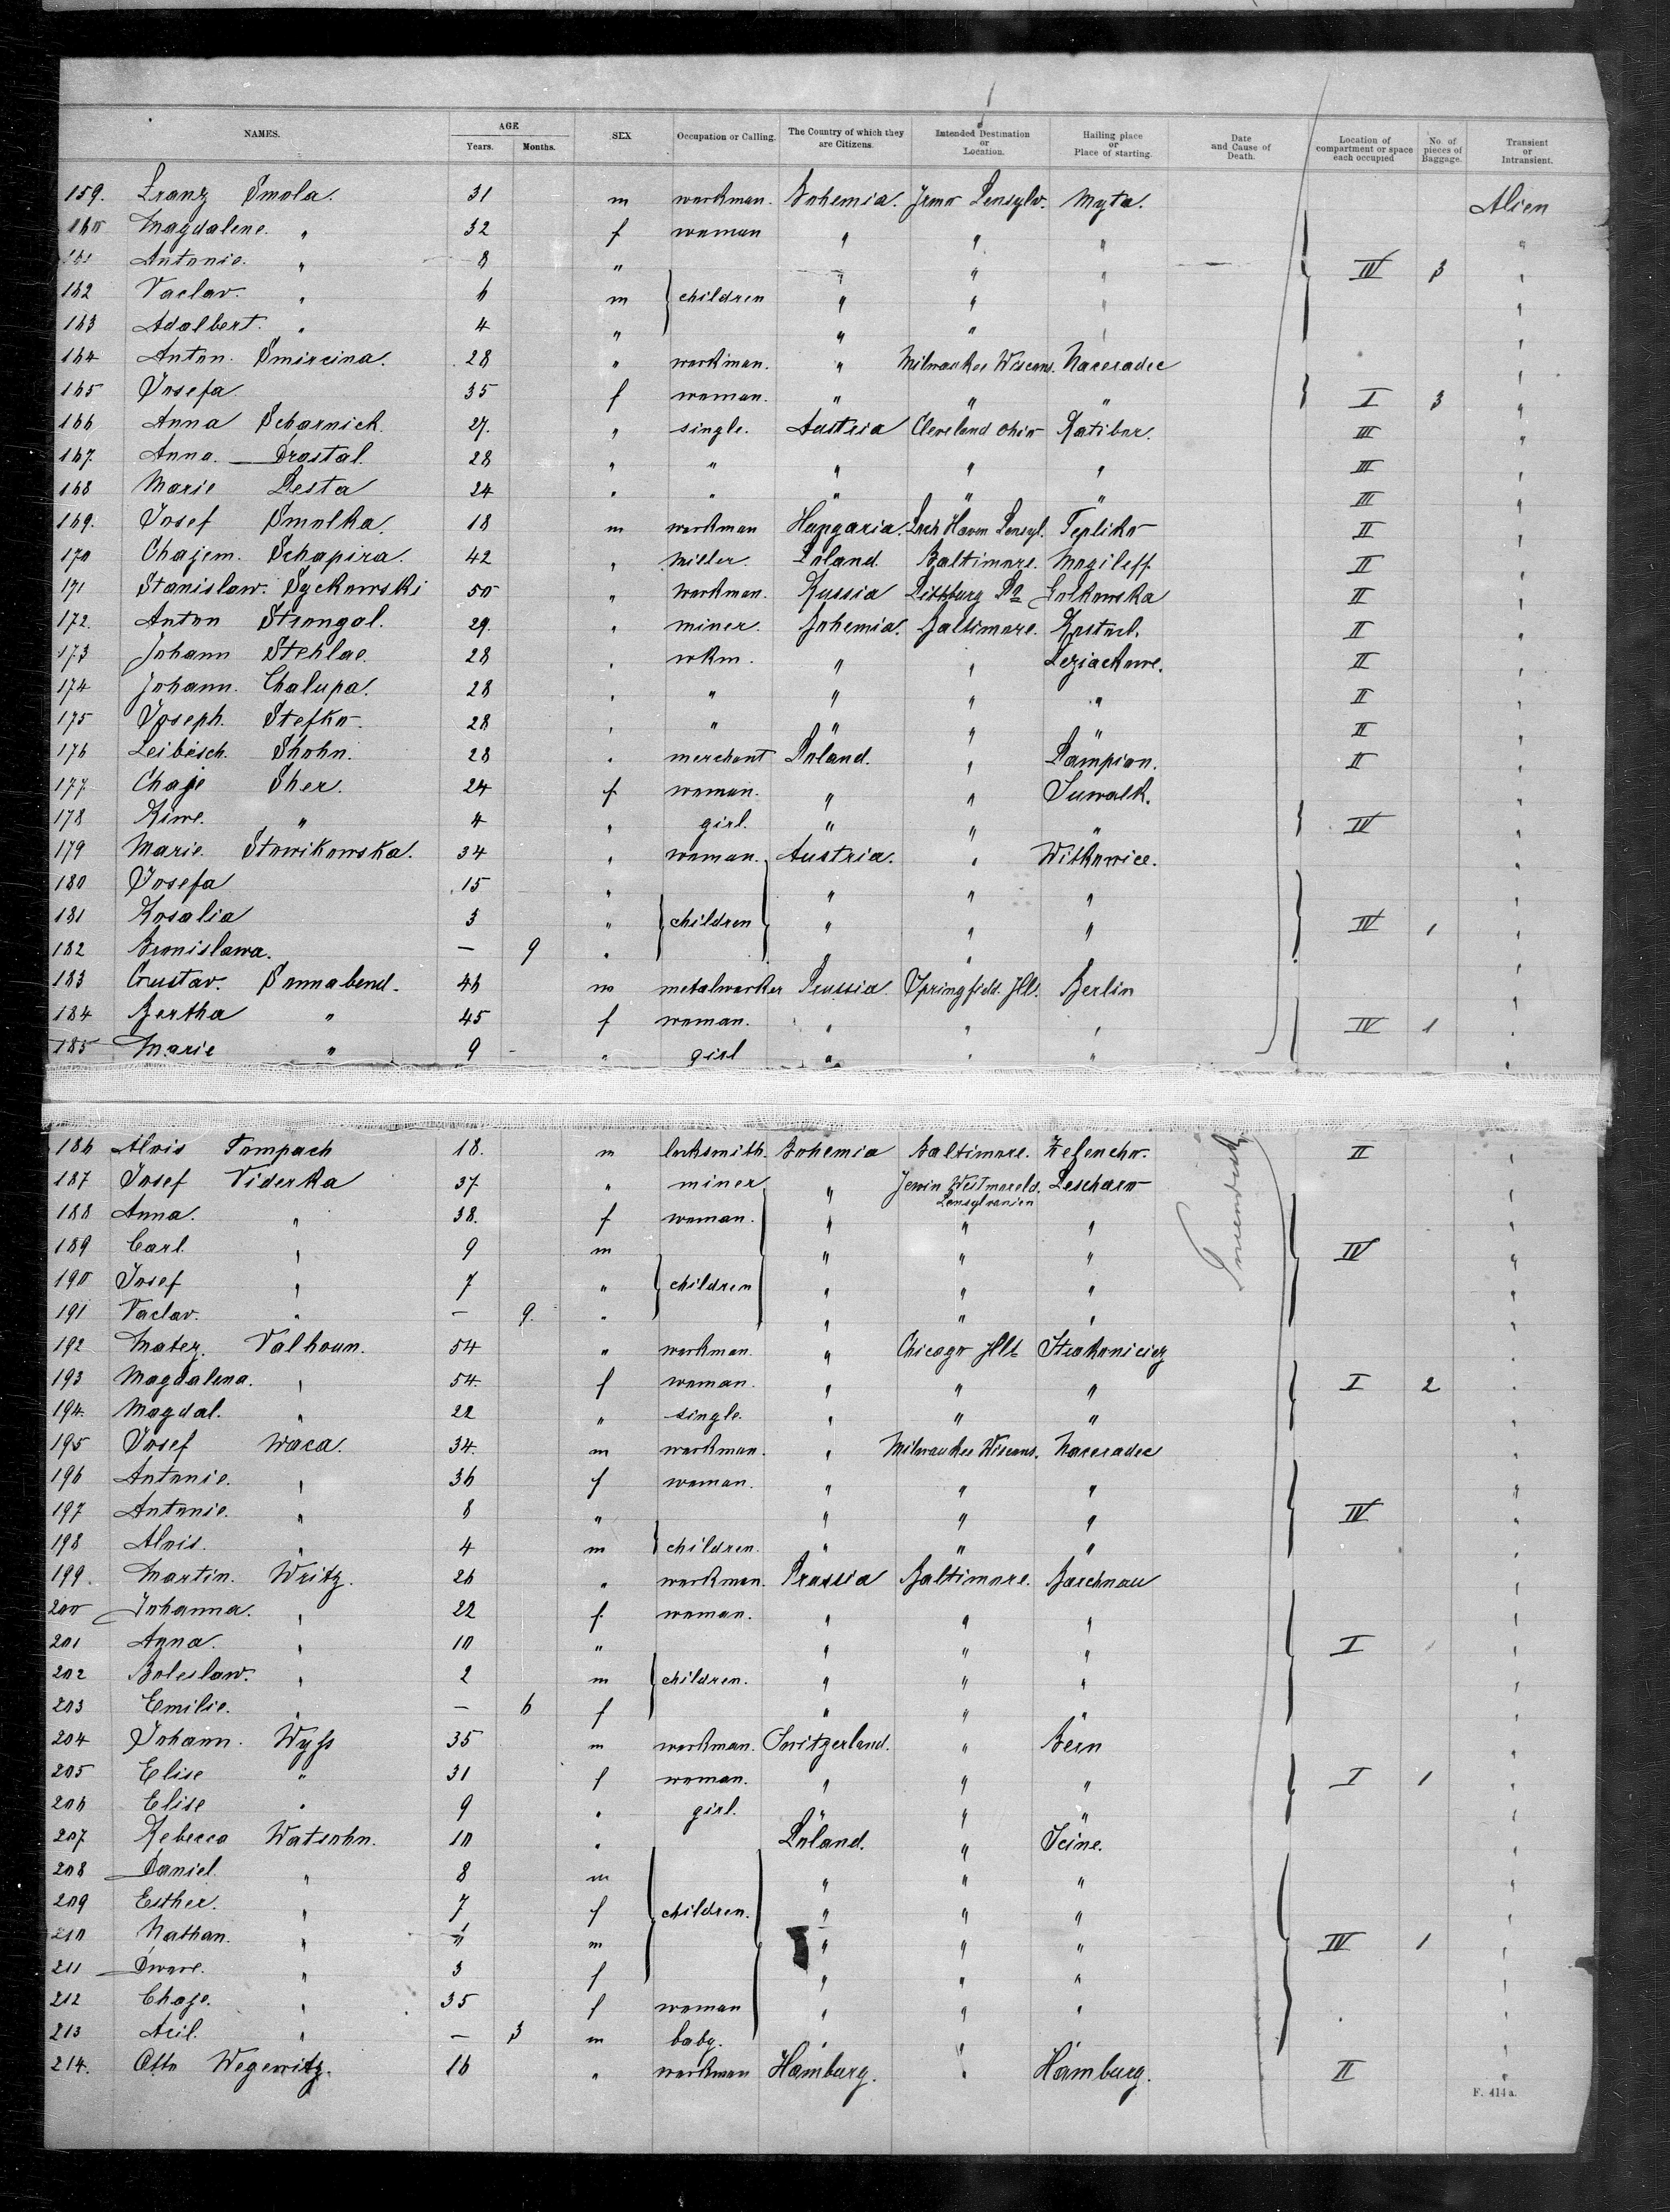 NAMES. AGE Years. Months. SEX Occupation or Calling. The Country of which they are Citizens. Intended Destination or Location. Hailing place or Place of starting. Date and Cause of Death. Location of compartment or space each occupied No. of pieces of Baggage. Transient or Intransient.
159. Franz Smola. 31 m workman. Bohemia. Pensylv. Myta. Alien
160 Magdalene. " 32 f woman " " " "
161 Antonie. " 8 " " " " IV 3 "
162 Vaclav. " 6 m children " " " "
163 Adalbert. " 4 " " " " "
164 Anton. Smircina. 28 " workman. " Milwaukee Wiscons. Naceradec "
165 Josefa 35 f woman. " " " I 3 "
166 Anna Scharnick. 27. " single. Austria Cleveland Ohio Ratibor. III "
167. Anna. Drastal. 28 " " " " " III "
168 Marie Pesta 24 " " " " " III "
169. Josef Smolka. 18 m workman Hungaria. Lock Haven Pensyl. Tepliko II "
170 Chajem. Schapira. 42 " Miller. Poland. Baltimore. Mogileff II "
171 Stanislaw. Syckowski 50 " Workman. Russia Pittburg Pa Golkowska II "
172. Anton Strongal. 29. " miner. Bohemia. Baltimore. Kostael. II "
173 Johann Stehlae. 28 " wkm. " " II "
174 Johann. Chalupa. 28 " " " " " II "
175 Joseph. Stefko. 28 " " " " " II "
176 Leibisch. Shohn. 28 " merchant Poland. " Pampian. II "
177. Chaje Sher. 24 f woman. " " Suwalk. "
178 Riwe. " 4 " girl. " " " IV "
179 Marie. Stowikowska. 34 " woman. Austria. " Witkowice. "
180 Josefa 15 " " " " "
181 Rosalia 3 " children " " " IV 1 "
182 Bronislawa. — 9 " " "
183 Gustav. Sonnabend. 46 m metalworker Prussia Springfield. Ill. Berlin "
184 Bertha " 45 f woman. " " " IV 1 "
185 Marie " 9 " girl " " " "
186 Alois Tompach 18. m locksmith. Bohemia Baltimore. Zelencho. II "
187 Josef Viderka 37 " miner " Jerwin Westmoreld. Lescharo "
Pensylvanien
188 Anna. " 38. f woman. " " " "
189 Carl. " 9 m " " " IV "
190 Josef " 7 " children " " " "
191 Vaclav. " — 9. " " " "
192 Matez. Valhoun. 54 " workman. " Chicago Ills Strakoniciez "
193 Magdalena. " 54. f woman. " " " I 2 "
194. Magdal. " 22 " single. " " " "
195 Josef Waca. 34. m workman. " Milwaukee Wiscons. Naceradec "
196 Antonie. " 36 f woman. " " " "
197 Antonie. " 8 " " " " IV "
198 Alois. " 4 m children. " " " "
199. Martin. Writz. 26 " workman. Prussia Baltimore. Barchnau "
200 Johanna. " 22 f woman. " " " "
201 Anna. " 10 " " " " I "
202 Boleslaw. " 2 m children. " " " "
203 Emilie. " — 6 f " " " "
204 Johann. Wyss 35 m workman. Switzerland. " Bern "
205 Elise " 31 f woman. " " " I 1 "
206 Elise " 9 " girl. " " " "
207 Rebecca Watsohn. 10 " Poland. " Seine. "
208 Daniel. " 8 m " " " "
209 Esther. " 7 f children. " " " "
210 Nathan. " m " " " IV 1 "
211 Dware. " 3 f " " " "
212 Chaje. " 35 f woman " " " "
213 Aril. " — 3 m baby. " " " "
214. Otto Wegewitz. 16 " workman Hamburg. " Hamburg. II "
F. 414a.